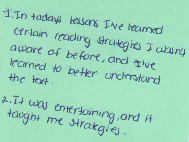 1. In todays lessons I've learned
certain reading strategies I wasn't
aware of before, and I've
learned to better understand
the text.
2. It was entertaining, and it
taught me strategies.